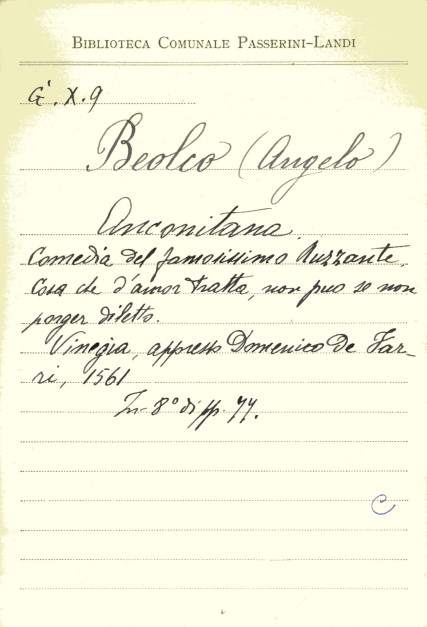 BIBLIOTECA COMUNALE PASSERINI-LANDI
G'. X. 9
Beolco (Angelo)
Anconitana.
Comedia del famosissimo Ruzzante.
Cosa che d'amor tratta, non puo se non
porger diletto.
Vinegia, appresso Domenico de Far-
ri, 1561
In-8° di pp. 77.
C